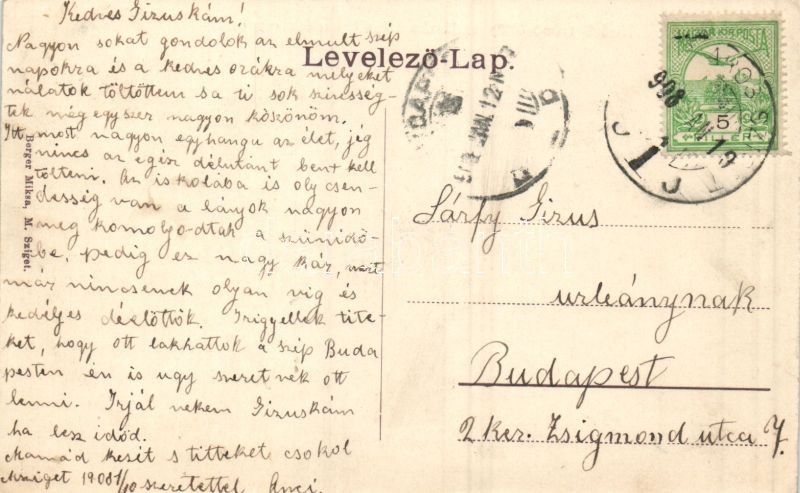 Kedves Gizuskám!
Nagyon sokat gondolok az elmult szép
napokra és a kedves órákra melyeket
nálatok töltöttem s a ti sok szivesség-
tek még egyszer nagyon köszönöm.
Itt most nagyon egyhangu az élet, jég
nincs az egész délutánt bent kell
tölteni. Az iskolába is oly csen-
desség van a lányok nagyon
meg komolyodtak a szünidő-
be, pedig ez nagy kár, mert
már nincsenek olyan vig és
kedélyes délelőttök. Irigyellek tite-
ket, hogy ott lakhattok a szép Buda
pesten én is ugy szeretnék ott
lenni. Irjál nekem Gizuskám
ha lesz időd.
Mamád kezit s titteket csokol
Msziget 1908 1/10 szeretettel Anci.
Levelező-Lap.
Berger Miksa, M. Sziget.
MAGYAR KIR. POSTA
5
FILLÉR
908
Sárfy Gizus
urleánynak
Budapest
2 ker. Zsigmond utca 7.